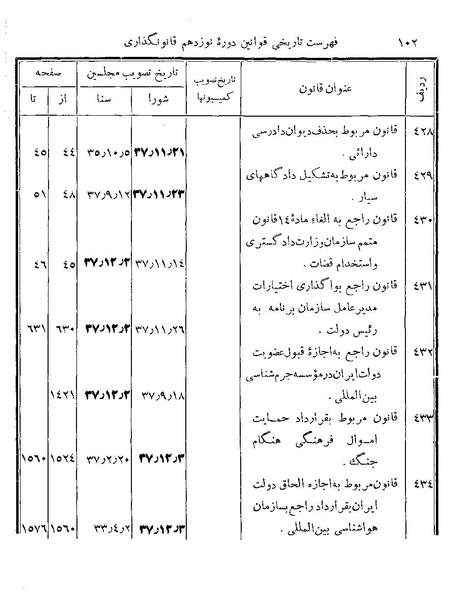 ۱۰۲ فهرست تاریخی قوانین دورهٔ نوزدهم قانونگذاری
ردیف عنوان قانون تاریخ تصویب کمیسیونها تاریخ تصویب مجلسین صفحه
شورا سنا از تا
۴۲۸ قانون مربوط بحذف دیوان دادرسی
دارائی . ۳۷٫۱۱٫۲۱ ۳۵٫۱۰٫۵ ۴۴ ۴۵
۴۲۹ قانون مربوط به تشکیل دادگاههای
سیار . ۳۷٫۱۱٫۲۳ ۳۷٫۹٫۱۲ ۴۸ ۵۱
۴۳۰ قانون راجع به الغاء مادهٔ ۱۴ قانون
متمم سازمان وزارت دادگستری
و استخدام قضات . ۳۷٫۱۱٫۱۴ ۳۷٫۱۲٫۲ ۴۵ ۴۶
۴۳۱ قانون راجع بواگذاری اختیارات
مدیرعامل سازمان برنامه به
رئیس دولت . ۳۷٫۱۱٫۲۶ ۳۷٫۱۲٫۲ ۶۳۰ ۶۳۱
۴۳۲ قانون راجع به اجازهٔ قبول عضویت
دولت ایران در مؤسسه جرم شناسی
بین المللی . ۳۷٫۹٫۱۸ ۳۷٫۱۲٫۲ ۱۴۲۱
۴۳۳ قانون مربوط بقرارداد حمایت
اموال فرهنگی هنگام
جنگ . ۳۷٫۱۲٫۳ ۳۷٫۲٫۲۰ ۱۵۲۴ ۱۵۶۰
۴۳۴ قانون مربوط به اجازه الحاق دولت
ایران بقرارداد راجع بسازمان
هواشناسی بین المللی . ۳۷٫۱۲٫۳ ۳۳٫۴٫۲ ۱۵۶۰ ۱۵۷۶